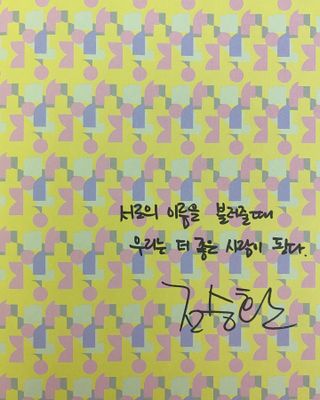 서로의 이름을 불러줄때
우리는 더 좋은 사람이 된다.